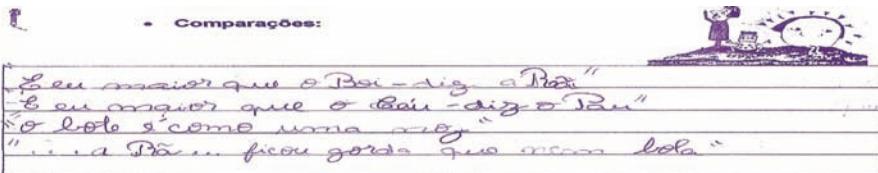 • Comparações:
"E eu maior que o Boi - diz a Rã"
"E eu maior que o Céu - diz o Pau"
"O bolo é como uma noz"
"... a Rã... ficou gorda que nem bola"